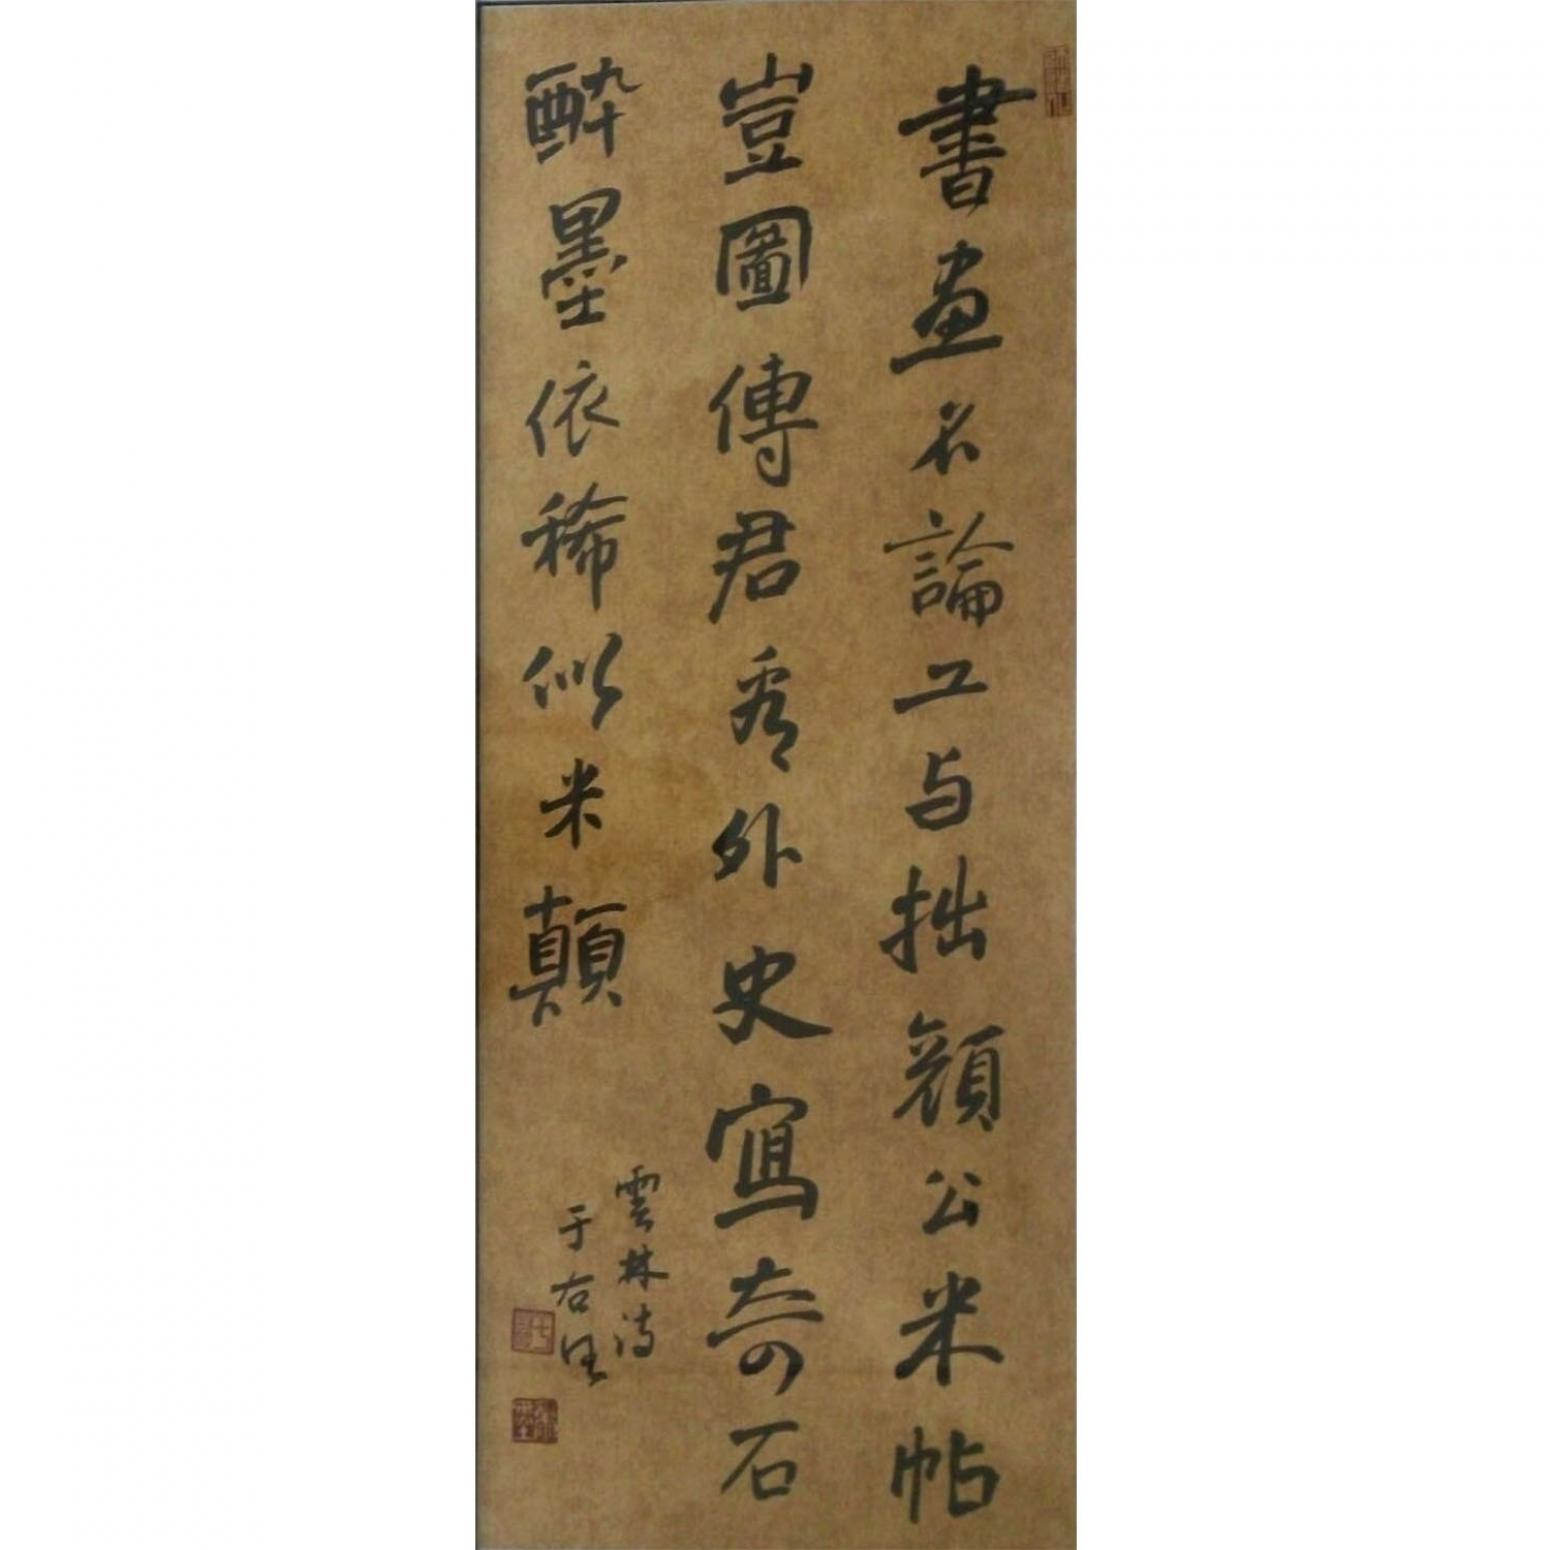 書画不論工与拙顔公米帖
豈圖傳君看外史寫奇石
酔墨依稀似米顛
雲林詩
于右任